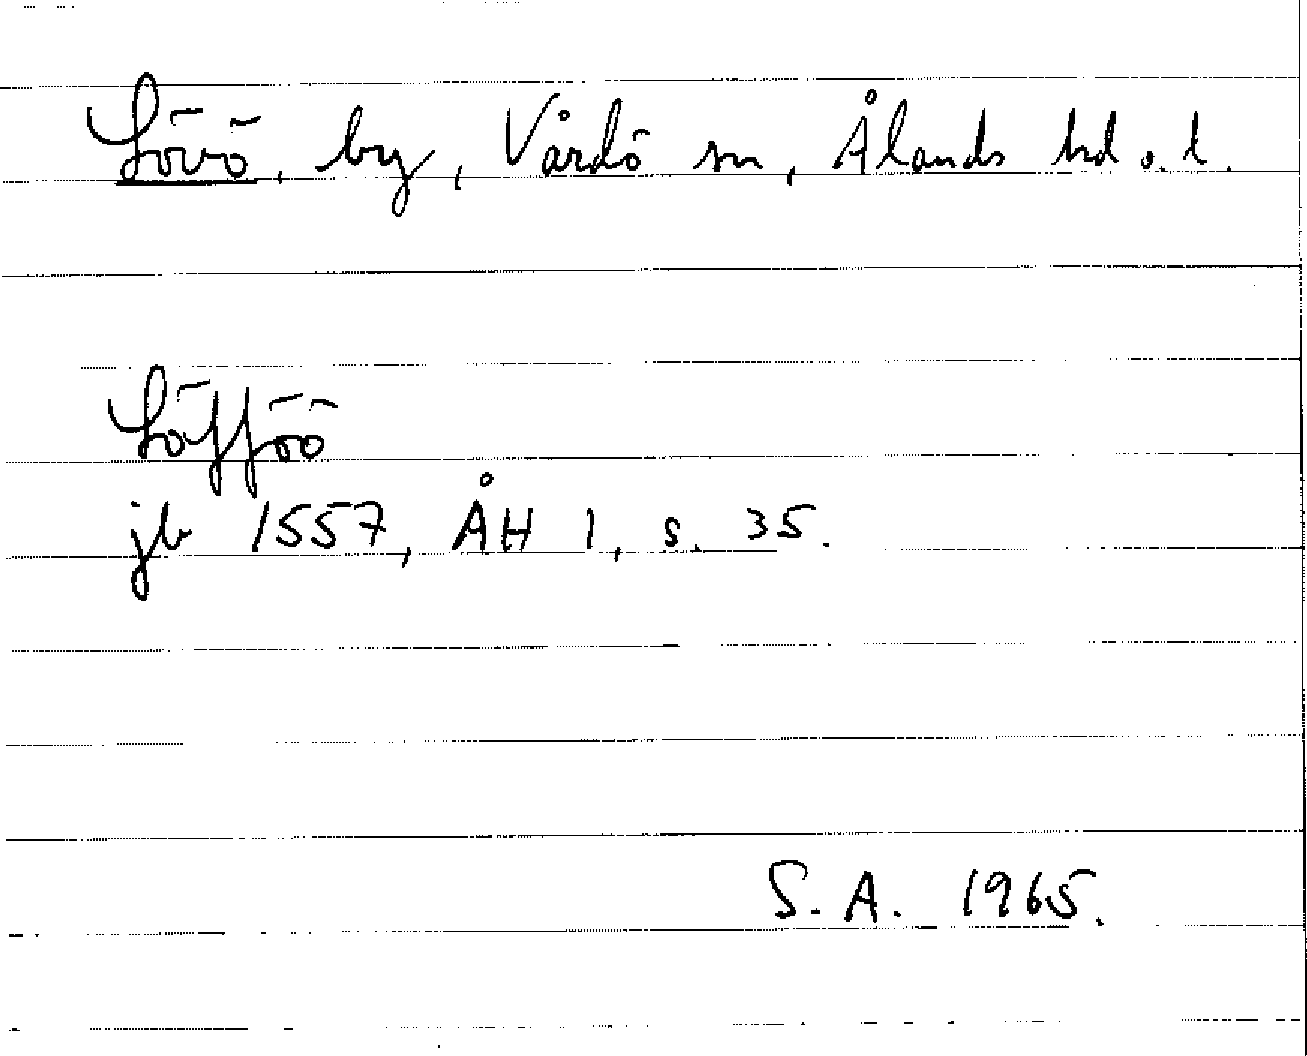 Lövö, by, Vårdö sn, Ålands hd o. l.
Löfföö
jb 1557, ÅH 1, s. 35.
S. A. 1965.